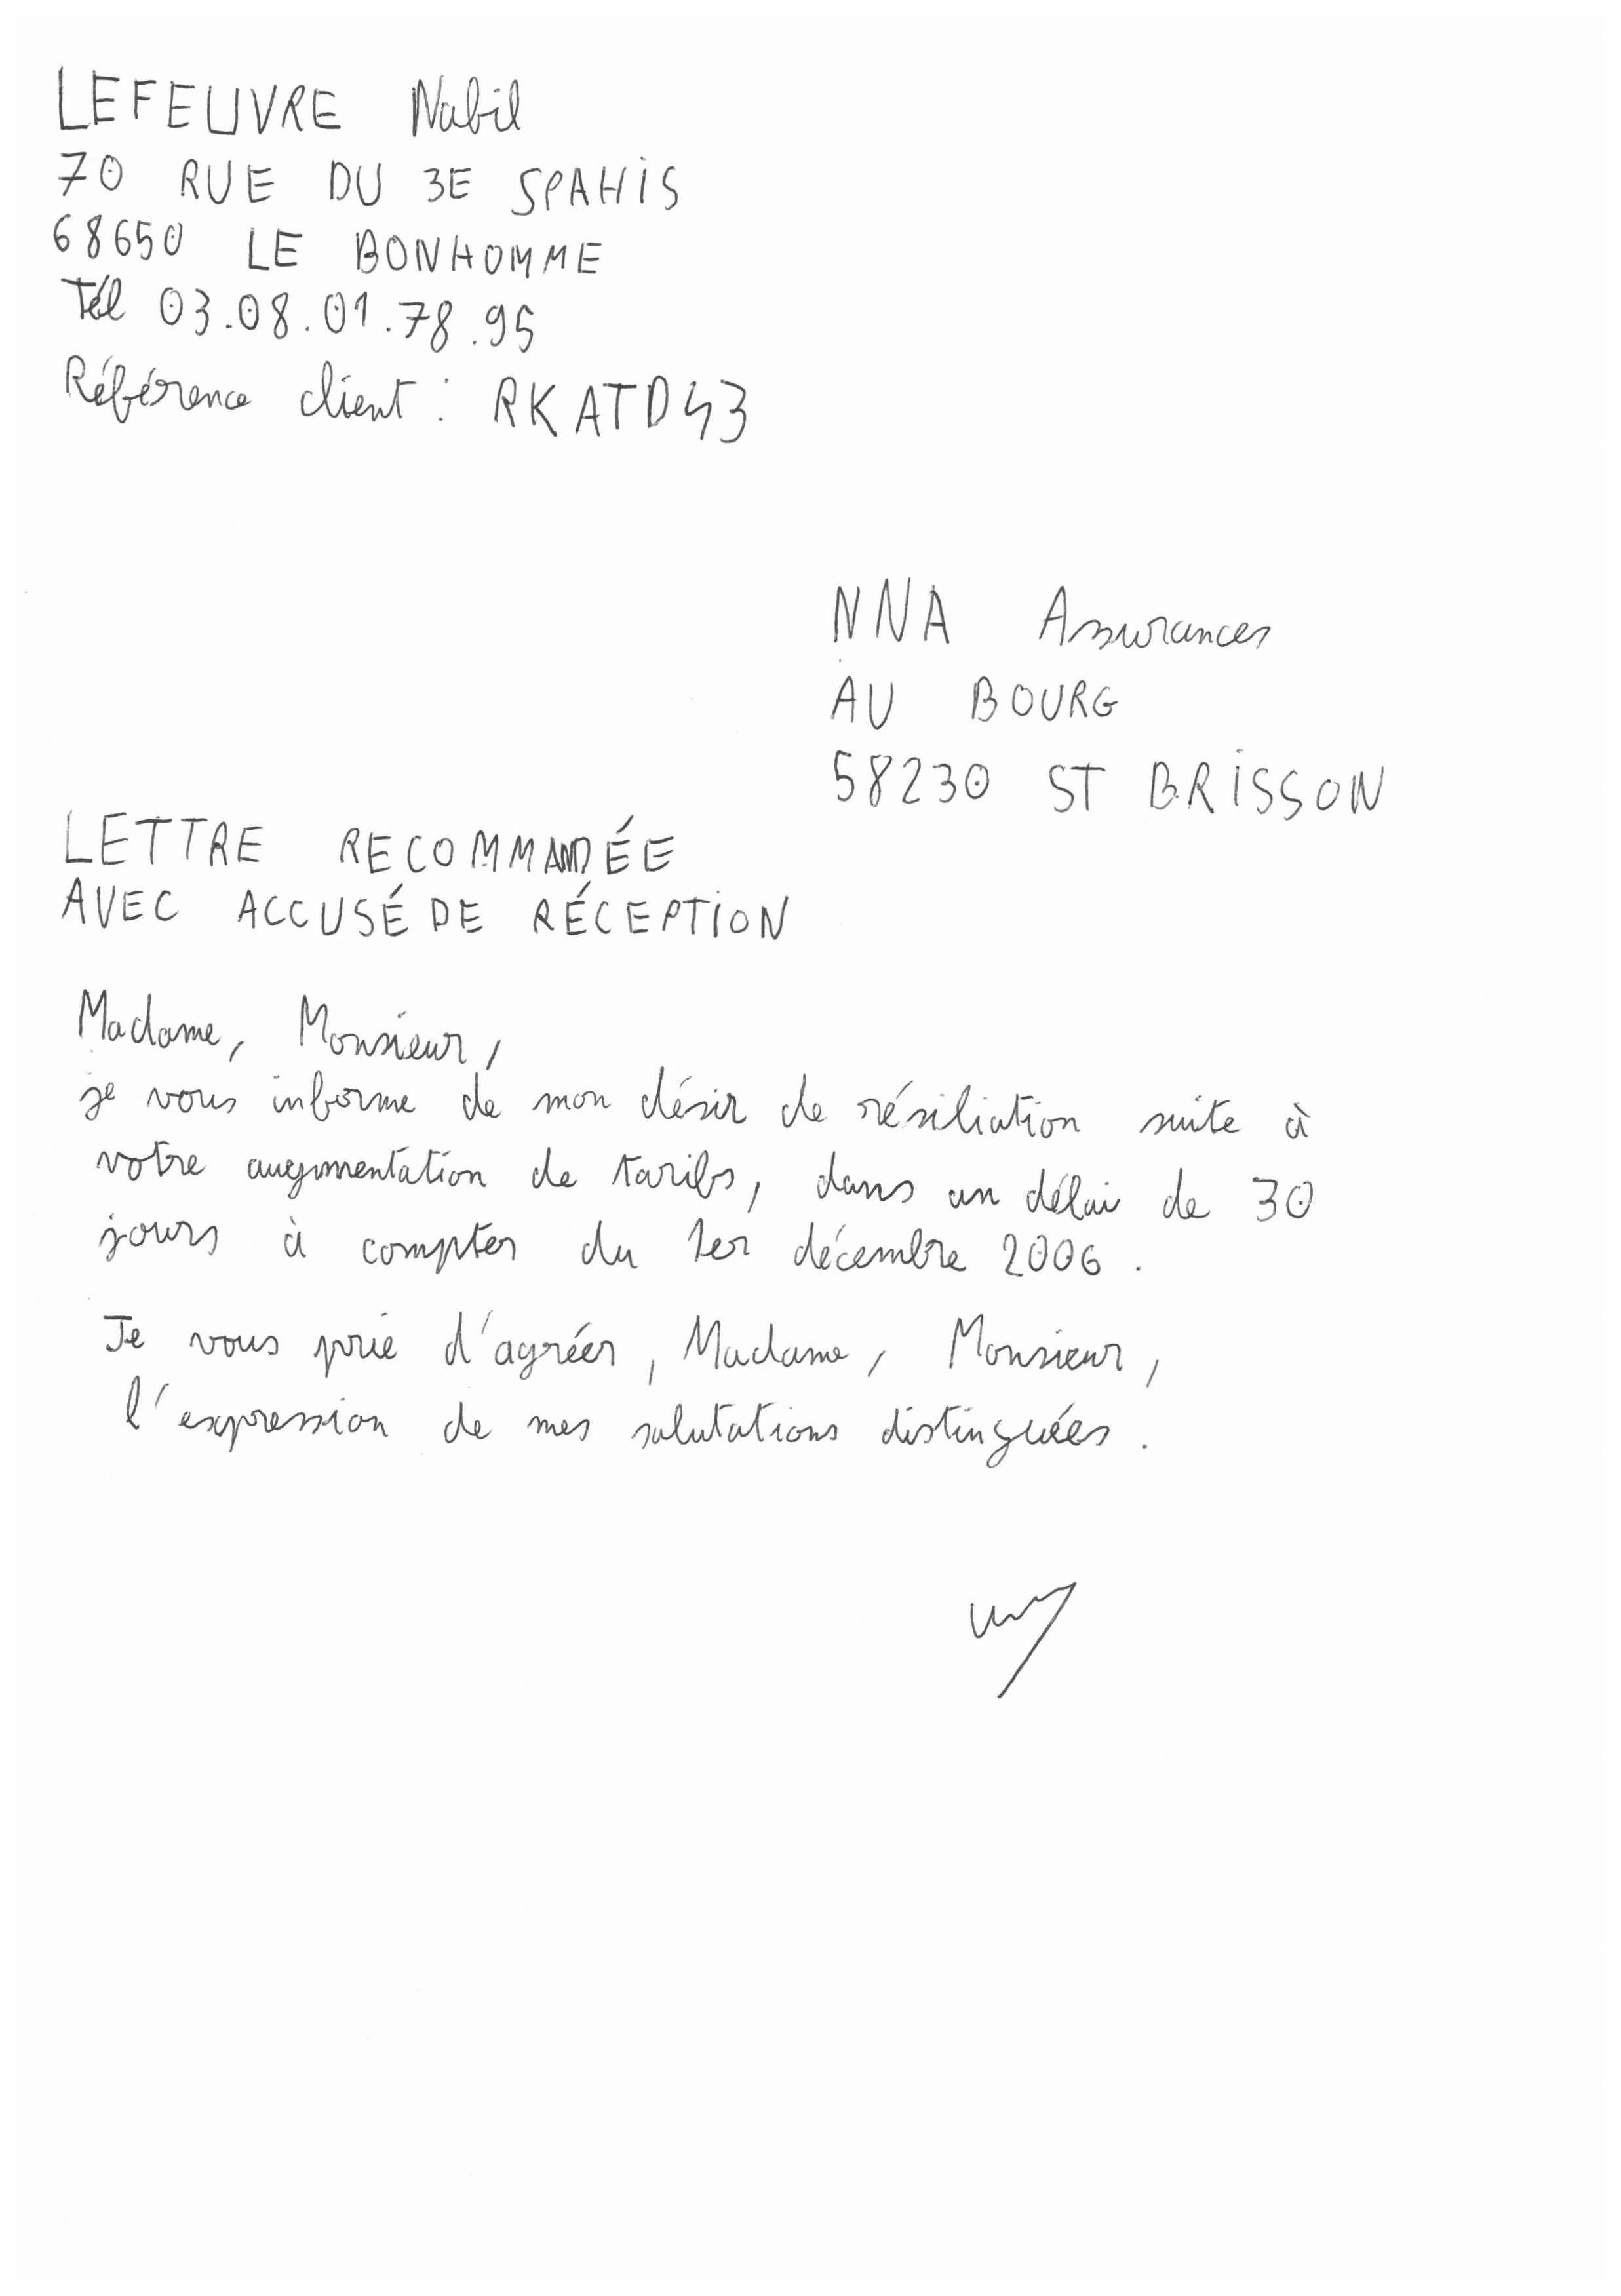 LEFEUVRE Nabil
70 RUE DU 3E SPAHIS
68650 LE BONHOMME
Tél 03.08.01.78.95
Référence client : RKATD43
NNA Assurances
AU BOURG
58230 ST BRISSON
LETTRE RECOMMANDÉE
AVEC ACCUSÉ DE RÉCEPTION
Madame, Monsieur,
je vous informe de mon désir de résiliation suite à
votre augmentation de tarifs, dans un délai de 30
jours à compter du 1er décembre 2006.
Je vous prie d'agréer, Madame, Monsieur,
l'expression de mes salutations distinguées.